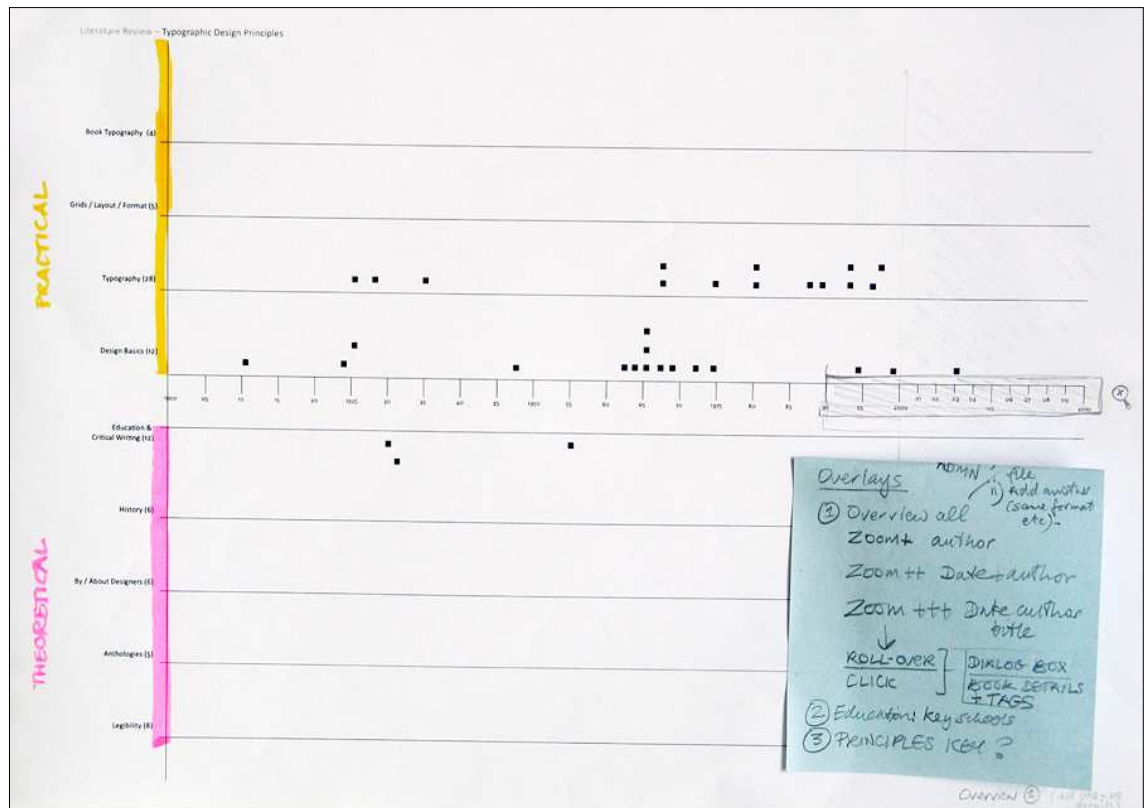 Literature Review – Typographic Design Principles
PRACTICAL
Book Typography (4)
Grids / Layout / Format (5)
Typography (28)
Design Basics (12)
1900 05 10 15 20 1925 30 35 40 45 1950 55 60 65 70 1975 80 85 90 95 2000
THEORETICAL
Education &
Critical Writing (12)
History (6)
By / About Designers (6)
Anthologies (5)
Legibility (8)
Overlays
ADMN
file
Add another
(same format
etc)
① Overview all
Zoom+ author
Zoom ++ Date + author
Zoom +++ Date author
title
ROLL-OVER
CLICK
DIALOG BOX
BOOK DETAILS
+ TAGS
② Education: key schools
③ PRINCIPLES KEY?
Overview ①